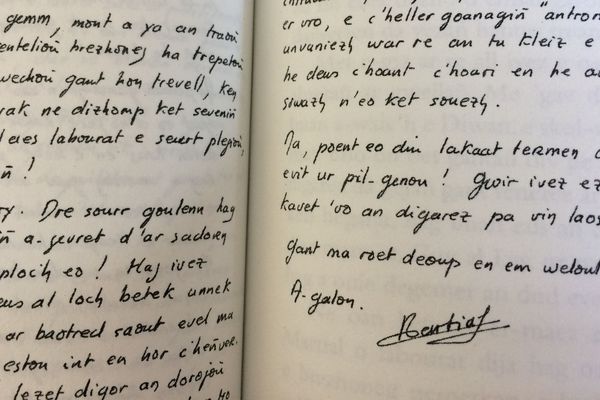 gemm, mont a ya an traoù
brezhoneg ha
gant hon trevell, ken
ne dizhomp ket seveniñ
labourat e seurt plegioù,
!
Dre sourr goulenn hag
a-gevret d'ar sadorn
eo ! Hag ivez
al loch betek unnek
ar baotred saout evel ma
int en hor c'heñver.
lezet digor an dorojoù
er vro, e c'heller goanagiñ "antron
unvaniezh war re an tu kleiz e
he deus c'hoant c'hoari en he
siwazh n'eo ket souezh.
Ya, poent eo din lakaat termen
evit ur pil-genou ! Gwir ivez ez
kavet 'vo an digarez pa vin laos
gant ma roet deoup en em welout
A-galon.